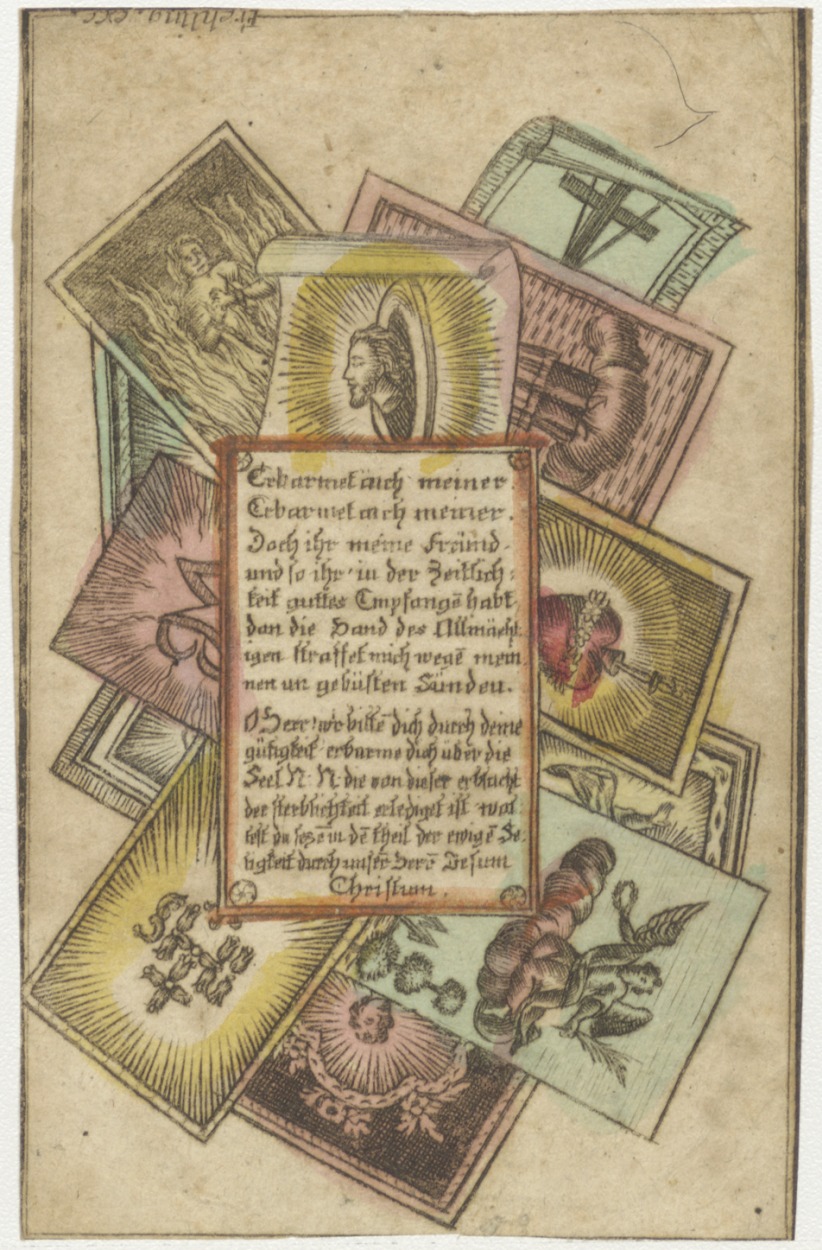 Frehling. exc.
Erbarmet äuch meiner.
Erbarmet euch meiner.
Doch ihr meine Freünd.
und so ihr in der Zeitlich=
keit guttes Empfangē habt,
dan die Hand des Allmächt
igen straffet mich wegē mein
nen un gebüsten Sünden.
O Herr wir bittē dich durch deine
gütigkeit erbarme dich uber die
Seel N. N. die von dieser
der sterblichkeit erlediget ist wol
test du in dē theil der ewigē Se.
ligkeit durch unsēr Herrē Jesum
Christum.